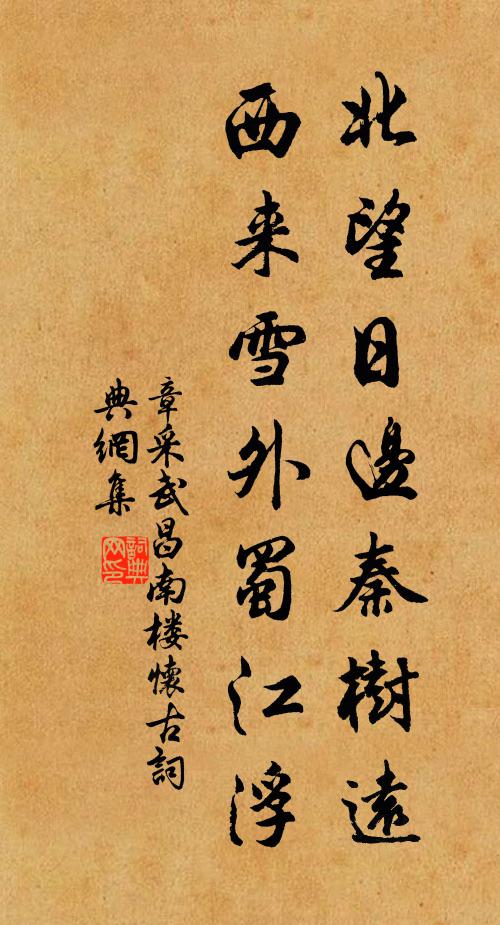 北望日邊秦樹遠
西来雪外蜀江浮
章采武昌南楼懷古詞
典網集
詞典
网印